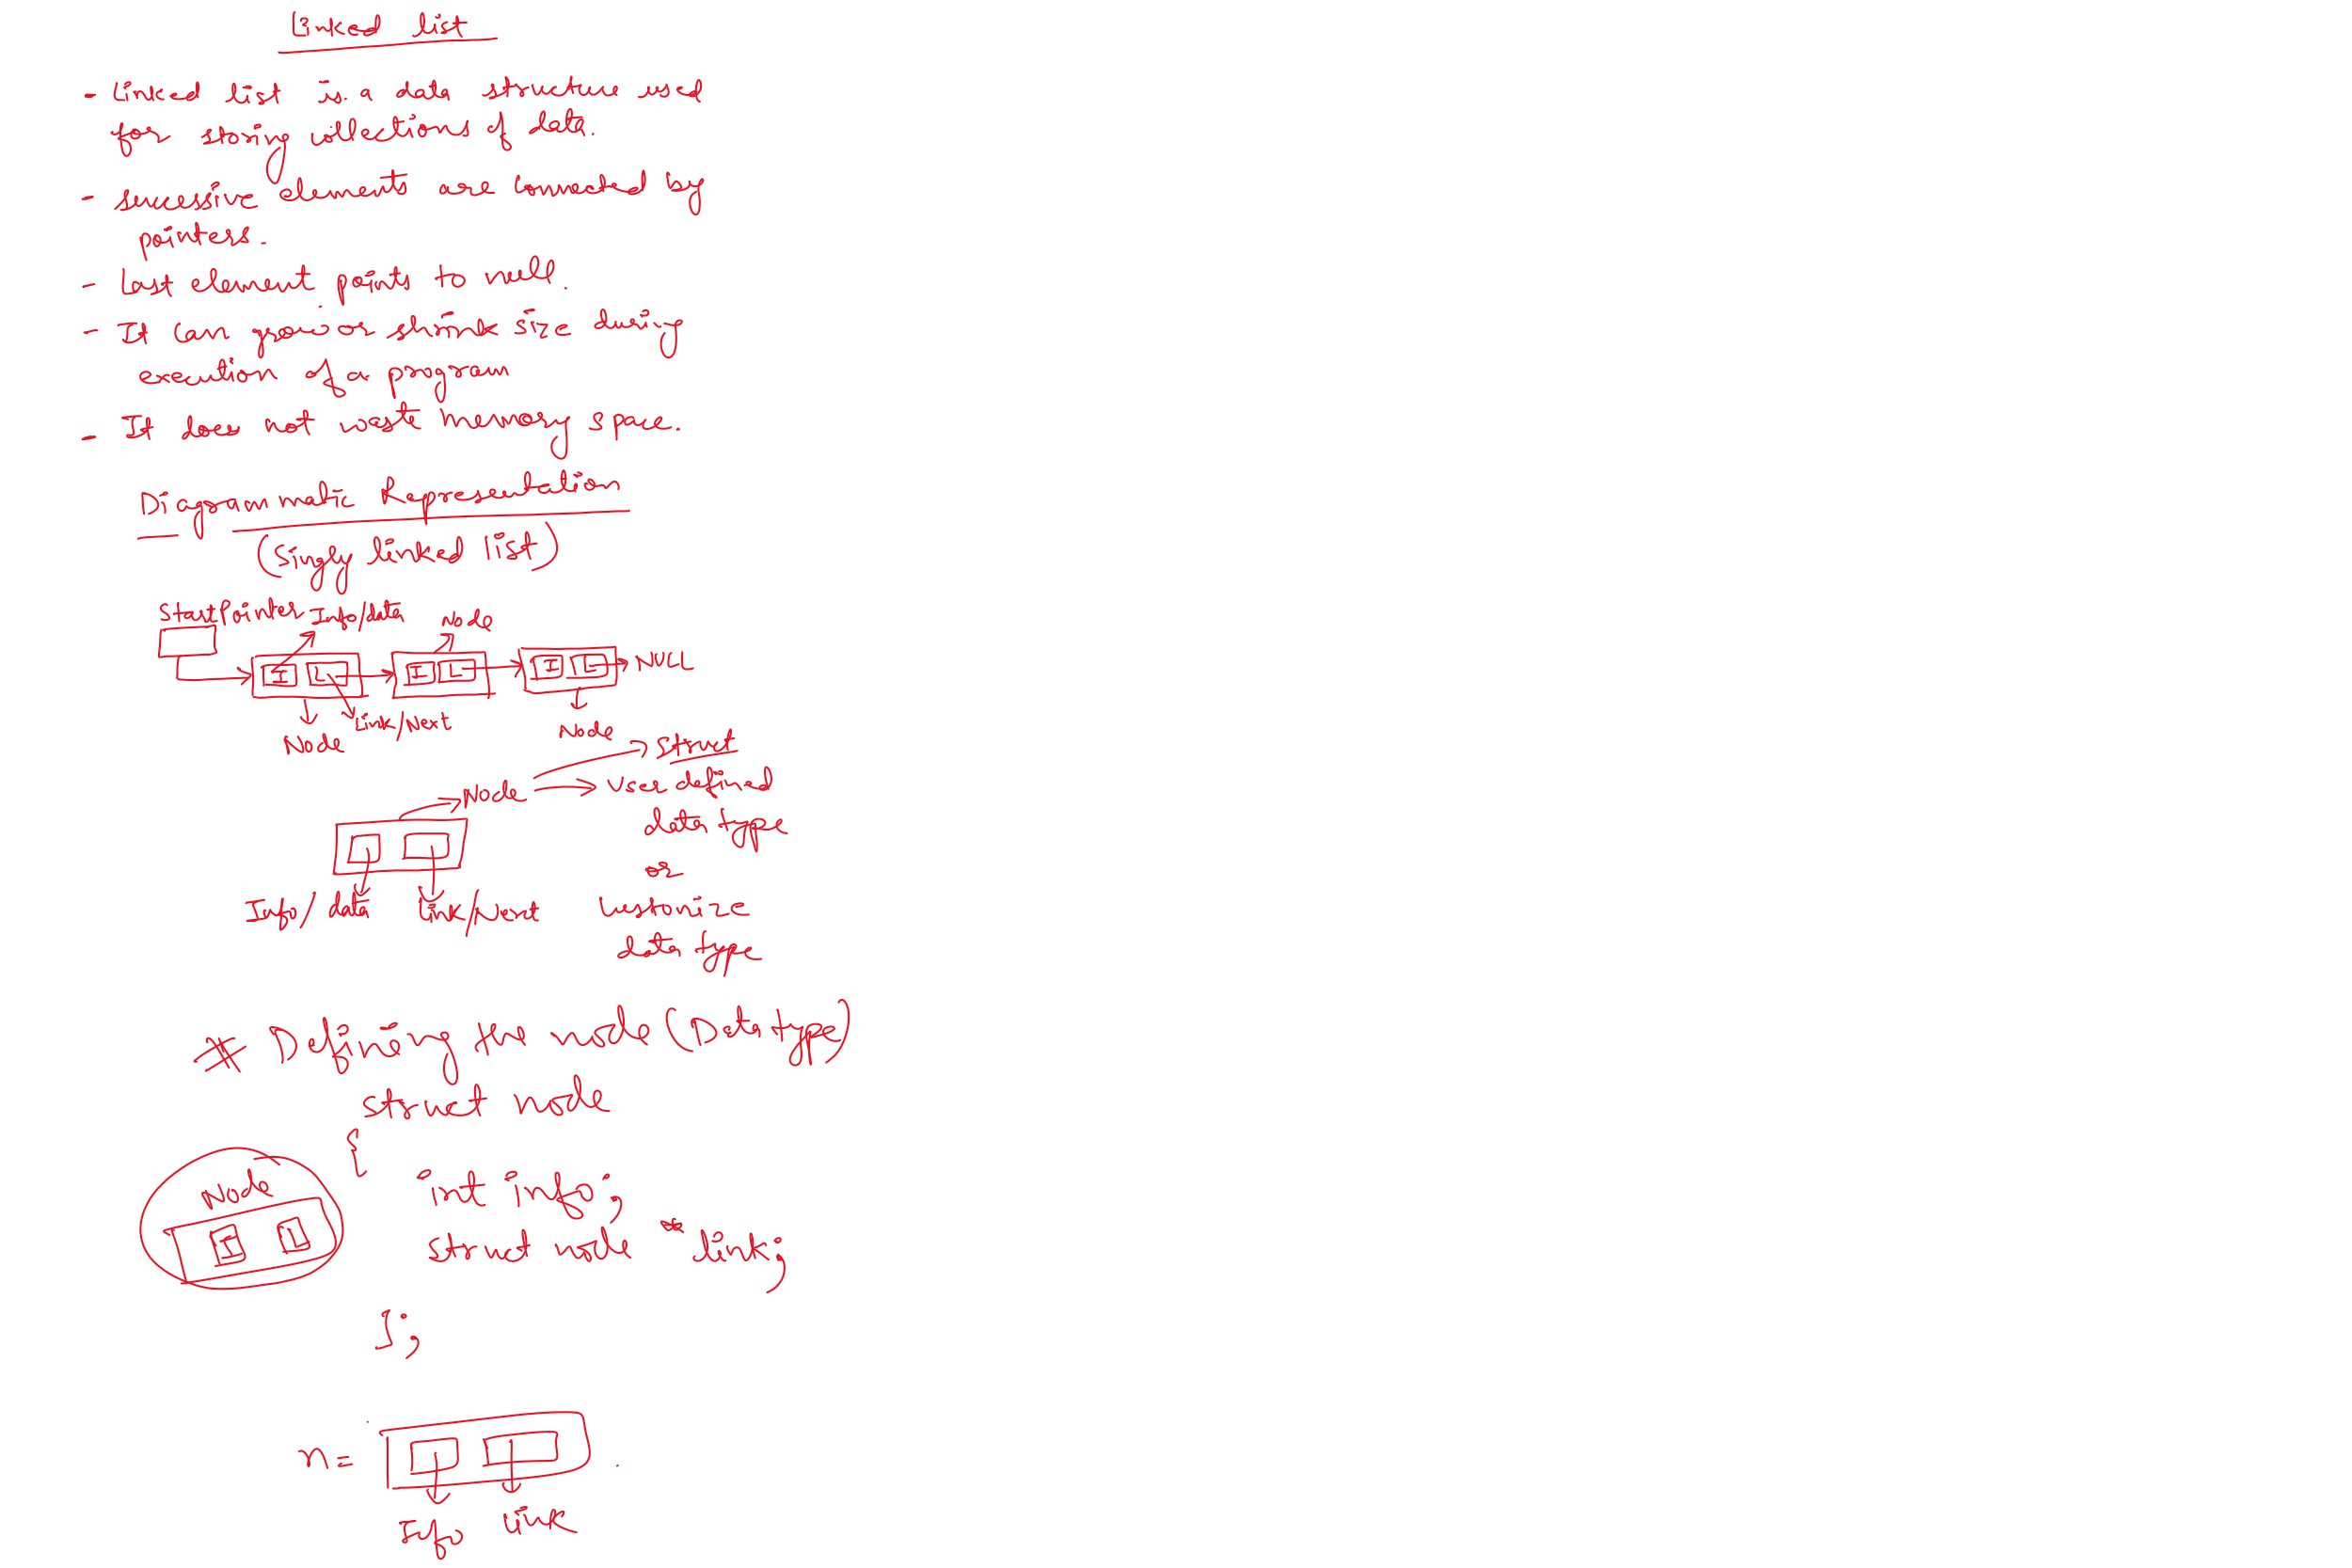 Linked list
- Linked list is a data structure used
for storing collections of data.
- successive elements are connected by
pointers.
- Last element points to null.
- It can grow or shrink size during
execution of a program
- It does not waste memory space.
Diagrammatic Representation
(Singly linked list)
Start Pointer Info/data Node
I L I L I L NULL
Link/Next
Node Node
struct
Node User defined
data type
or
Info/data Link/Next Customize
data type
* Defining the node (Data type)
struct node
{
Node
int info;
I L
struct node *link;
};
n =
Info link